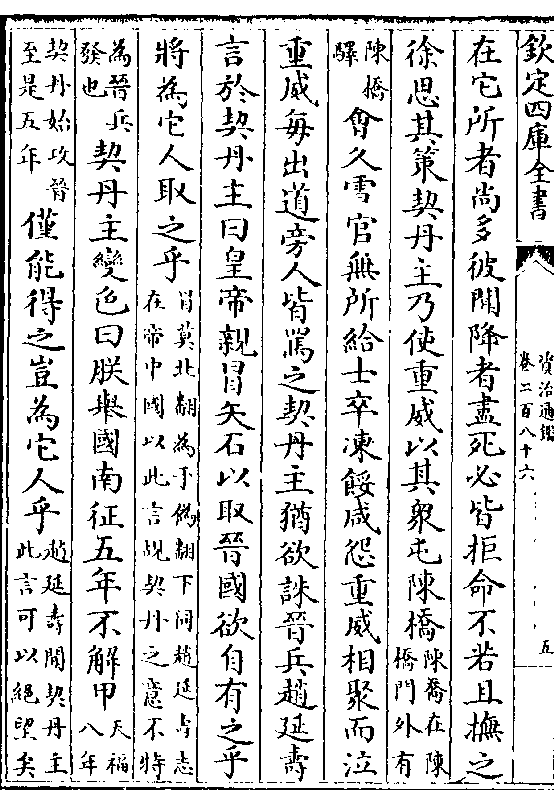 欽定四庫全書
資治通鑑
卷二百八十六
五
在它所者尚多彼聞降者盡死必皆拒命不若且撫之
徐思其策契丹主乃使重威以其衆屯陳橋陳喬在陳橋門外有
陳橋驛會久雪官無所給士卒凍餒咸怨重威相聚而泣
重威每出道旁人皆罵之契丹主猶欲誅晉兵趙延壽
言於契丹主曰皇帝親冒矢石以取晉國欲自有之乎
將為它人取之乎冒莫北翻為于偽翻下同趙延壽志在帝中國以此言覘契丹之意不特
為晉兵發也契丹主變色曰朕舉國南征五年不解甲天福八年
契丹始攻晉至是五年僅能得之豈為它人乎趙延壽聞契丹主此言可以絶望矣